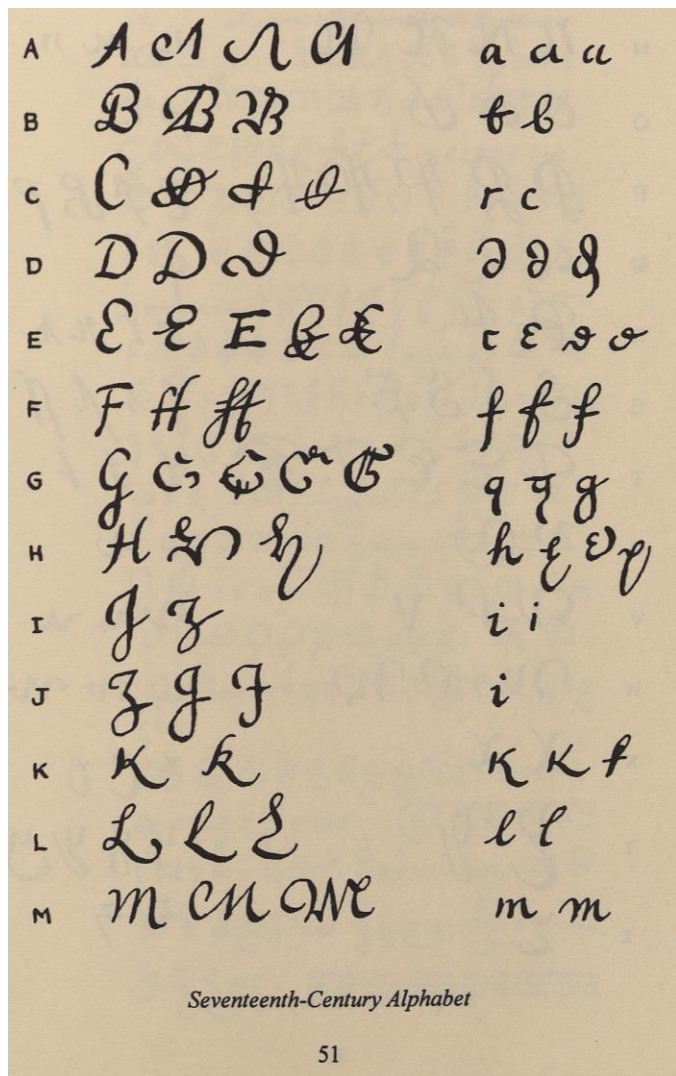 A A A A A a a a
B B B B b b
C C C C C r c
D D D D d d d
E E E E E E e e e e
F F ff ff f f f
G G G G G G g g g
H H H H h h h h
I I I i i
J J J J i
K K K K K k
L L L L l l
M M M M m m
Seventeenth-Century Alphabet
51